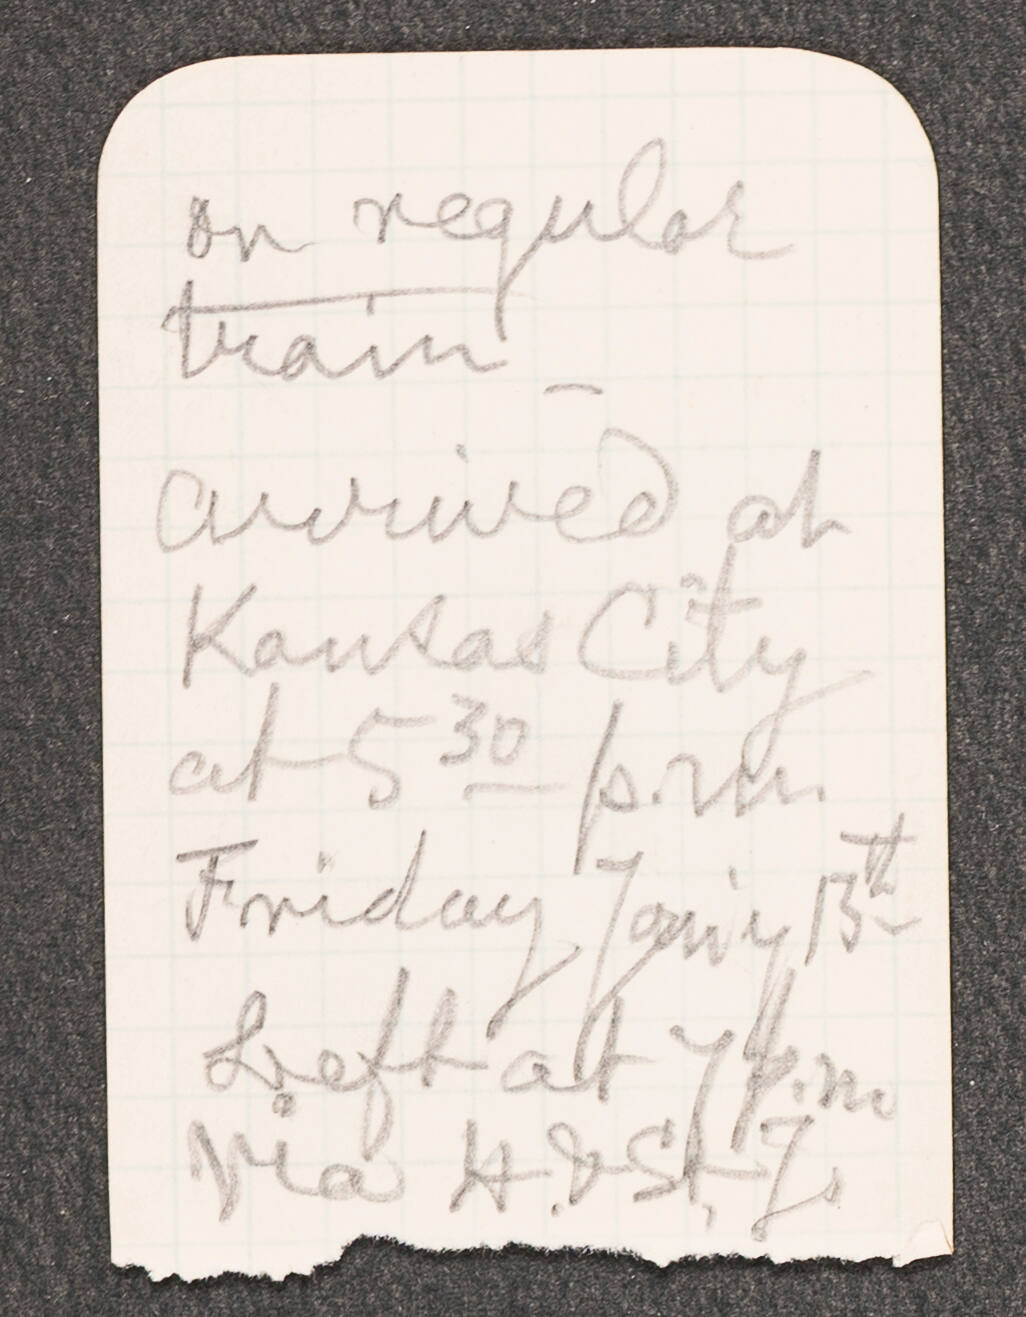 on regular
train –
arrived at
Kansas City
at 5 30 p.m.
Friday Jany 13th
Left at 7 p.m
Via H. & St. J.